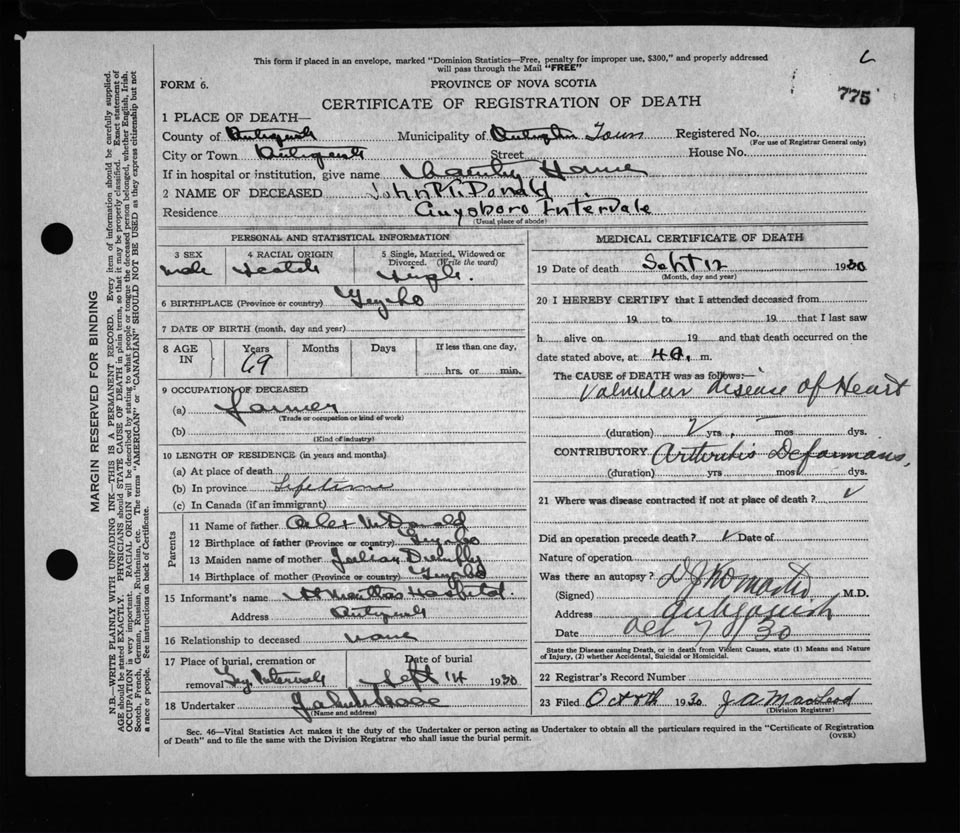 This form if placed in an envelope, marked "Dominion Statistics—Free, penalty for improper use, $300," and properly addressed
will pass through the Mail "FREE"
FORM 6.
PROVINCE OF NOVA SCOTIA
775
CERTIFICATE OF REGISTRATION OF DEATH
1 PLACE OF DEATH—
County of
Municipality of Town Registered No.
(For use of Registrar General only)
City or Town Street House No.
If in hospital or institution, give name Home
2 NAME OF DECEASED John McDonald
Residence Guysboro Intervale
(Usual place of abode)
PERSONAL AND STATISTICAL INFORMATION
3 SEX 4 RACIAL ORIGIN 5 Single, Married, Widowed or
Divorced. (Write the word)
male Scotch Single.
6 BIRTHPLACE (Province or country) Guysbo
7 DATE OF BIRTH (month, day and year)
8 AGE IN Years Months Days If less than one day,
69 hrs. or min.
9 OCCUPATION OF DECEASED
(a) Farmer
(Trade or occupation or kind of work)
(b)
(Kind of industry)
10 LENGTH OF RESIDENCE (in years and months)
(a) At place of death
(b) In province Lifetime
(c) In Canada (if an immigrant)
Parents
11 Name of father Alex McDonald
12 Birthplace of father (Province or country) Guysbo
13 Maiden name of mother
14 Birthplace of mother (Province or country) Guysbo
15 Informant's name St Marthas Hospital.
Address
16 Relationship to deceased none
17 Place of burial, cremation or
removal Guy Intervale
Date of burial
Sept 14 1930
18 Undertaker
(Name and address)
MEDICAL CERTIFICATE OF DEATH
19 Date of death Sept 12 1930
(Month, day and year)
20 I HEREBY CERTIFY that I attended deceased from
19 to 19 that I last saw
h alive on 19 and that death occurred on the
date stated above, at 4 a. m.
The CAUSE of DEATH was as follows:—
Valvular disease of Heart
(duration) yrs. mos. dys.
CONTRIBUTORY Arthritis Deformans,
(duration) yrs. mos. dys.
21 Where was disease contracted if not at place of death?
Did an operation precede death? Date of
Nature of operation
Was there an autopsy?
(Signed) M.D.
Address Antigonish
Date Oct 7 / 30
State the Disease causing Death, or in death from Violent Causes, state (1) Means and Nature
of Injury, (2) whether Accidental, Suicidal or Homicidal.
22 Registrar's Record Number
23 Filed Oct 8th 1930 J A Macleod
(Division Registrar)
Sec. 46—Vital Statistics Act makes it the duty of the Undertaker or person acting as Undertaker to obtain all the particulars required in the "Certificate of Registration
of Death" and to file the same with the Division Registrar who shall issue the burial permit.
(OVER)
MARGIN RESERVED FOR BINDING
N.B.—WRITE PLAINLY WITH UNFADING INK—THIS IS A PERMANENT RECORD. Every item of information should be carefully supplied.
AGE should be stated EXACTLY. PHYSICIANS should STATE CAUSE OF DEATH in plain terms, so that it may be properly classified. Exact statement of
OCCUPATION is very important. RACIAL ORIGIN will be described by stating to what people or tongue the deceased person belonged, whether English, Irish,
Scotch, French, German, Russian, Ruthenian, etc. The terms "AMERICAN" or "CANADIAN" SHOULD NOT BE USED as they express citizenship but not
a race or people. See instructions on back of Certificate.